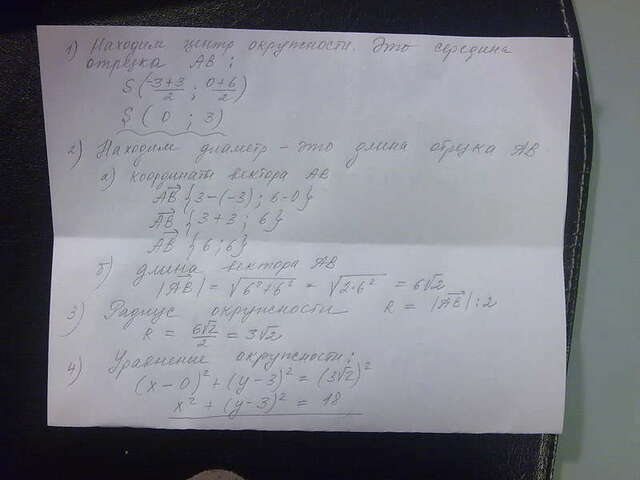 1) Находим центр окружности. Это середина
отрезка АВ:
S(-3+3/2 ; 0+6/2)
S( 0 ; 3)
2) Находим диаметр - это длина отрезка АВ
а) координаты вектора АВ
AB {3-(-3); 6-0}
AB {3+3 ; 6}
AB {6 ; 6}
б) длина вектора АВ
|AB| = √6²+6² = √2·6² = 6√2
3) Радиус окружности R = |AB| : 2
R = 6√2/2 = 3√2
4) Уравнение окружности:
(x-0)² + (y-3)² = (3√2)²
x² + (y-3)² = 18